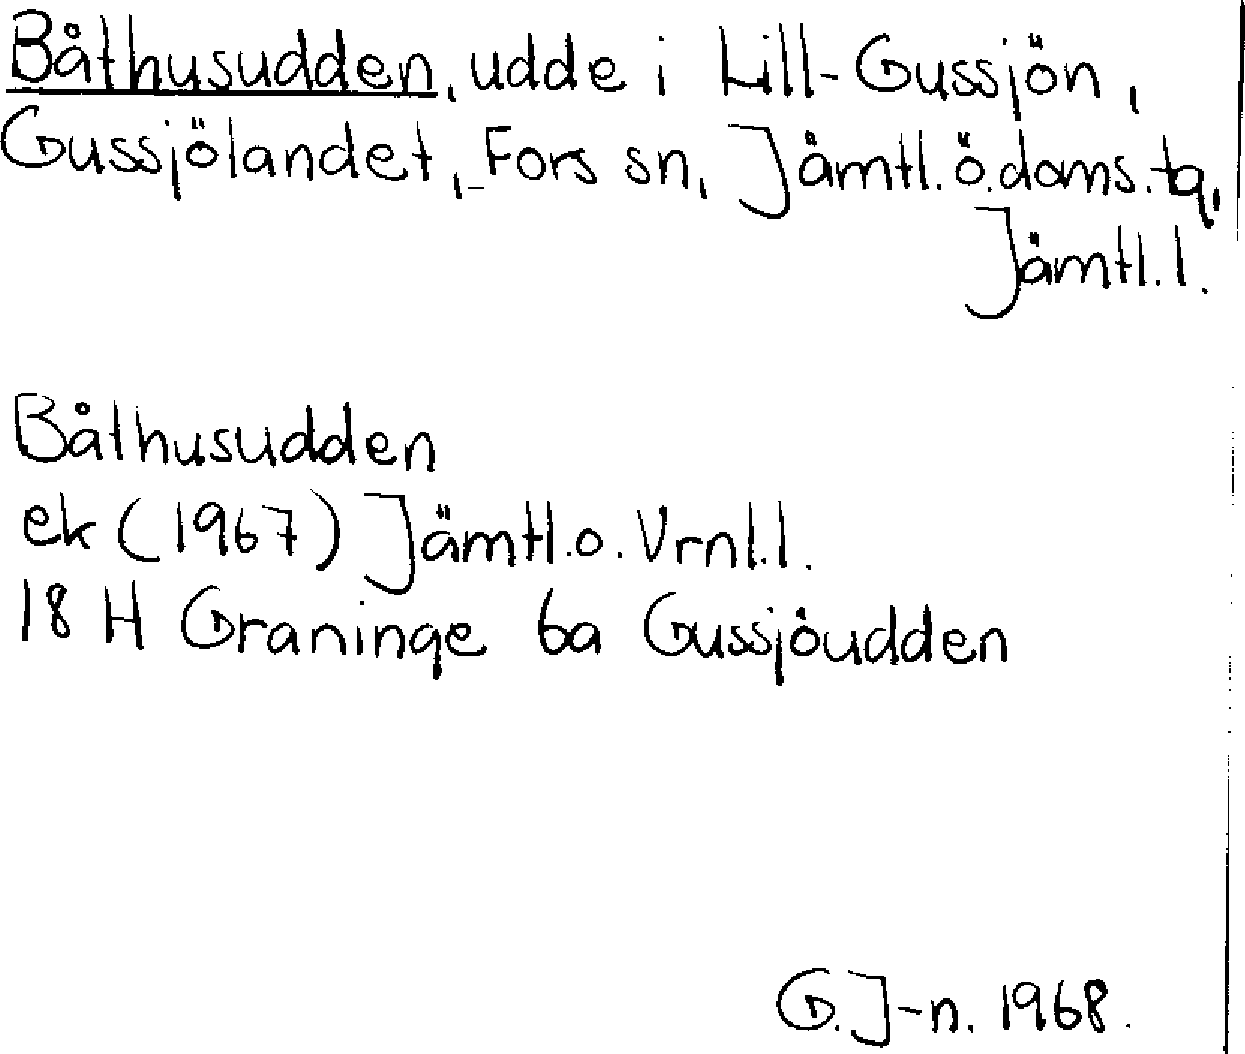 Båthusudden, udde i Lill-Gussjön,
Gussjölandet, Fors sn, Jämtl. ö. doms. tg,
Jämtl. l.
Båthusudden
ek (1967) Jämtl. o. Vrnl. l.
18 H Graninge 6a Gussjöudden
G. J-n. 1968.